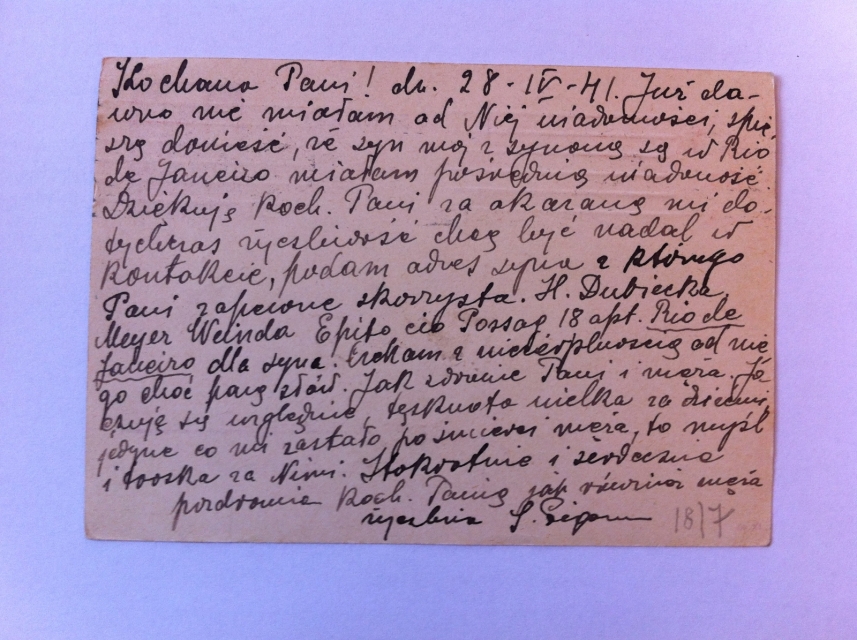 Kochana Pani! dn. 28-IV-41. Już da-
wno nie miałam od Niej wiadomości, spie
szę donieść, że syn mój z synową są w Rio
de Janeiro miałam pośrednią wiadomość.
Dziękuję Koch. Pani za okazaną mi do-
tychczas życzliwość chcę być nadal w
kontakcie, podam adres syna z którego
Pani zapewne skorzysta. H. Dubiecka
Meyer Epito cio Possag 18 apt. Rio de
Janeiro dla syna. Czekam z niecierpliwością od nie
go choć parę słów. Jak zdrowie Pani i męża. Ja
czuję się względnie, tęsknota wielka za dziećmi,
jedyne co mi zostało po śmierci męża, to myśl
i troska za Nimi. Stokrotnie i serdecznie
pozdrawia Koch. Panią jak również męża
życzliwa S.
18/7